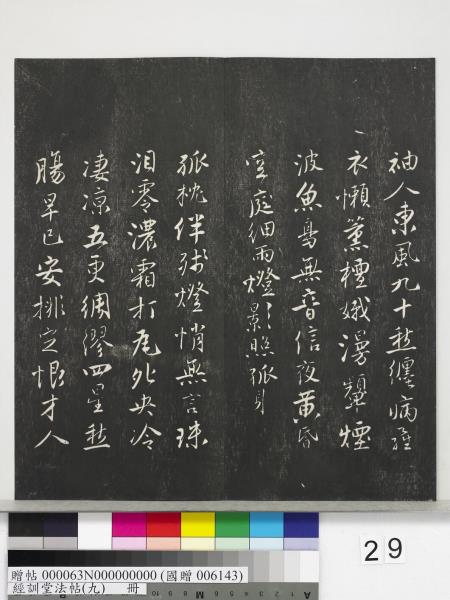 袖人東風九十愁纏病雞
衣懶薰檀娥漫顰煙
波魚鳥無音信夜黃昏
空庭細雨燈影照孤身
孤枕伴殘燈悄無言珠
淚零濃霜打瓦鴛央冷
淒涼五更綢繆四星愁
腸早已安排定恨才人
29
贈帖 000063N000000000 (國贈 006143)
經訓堂法帖(九) 冊